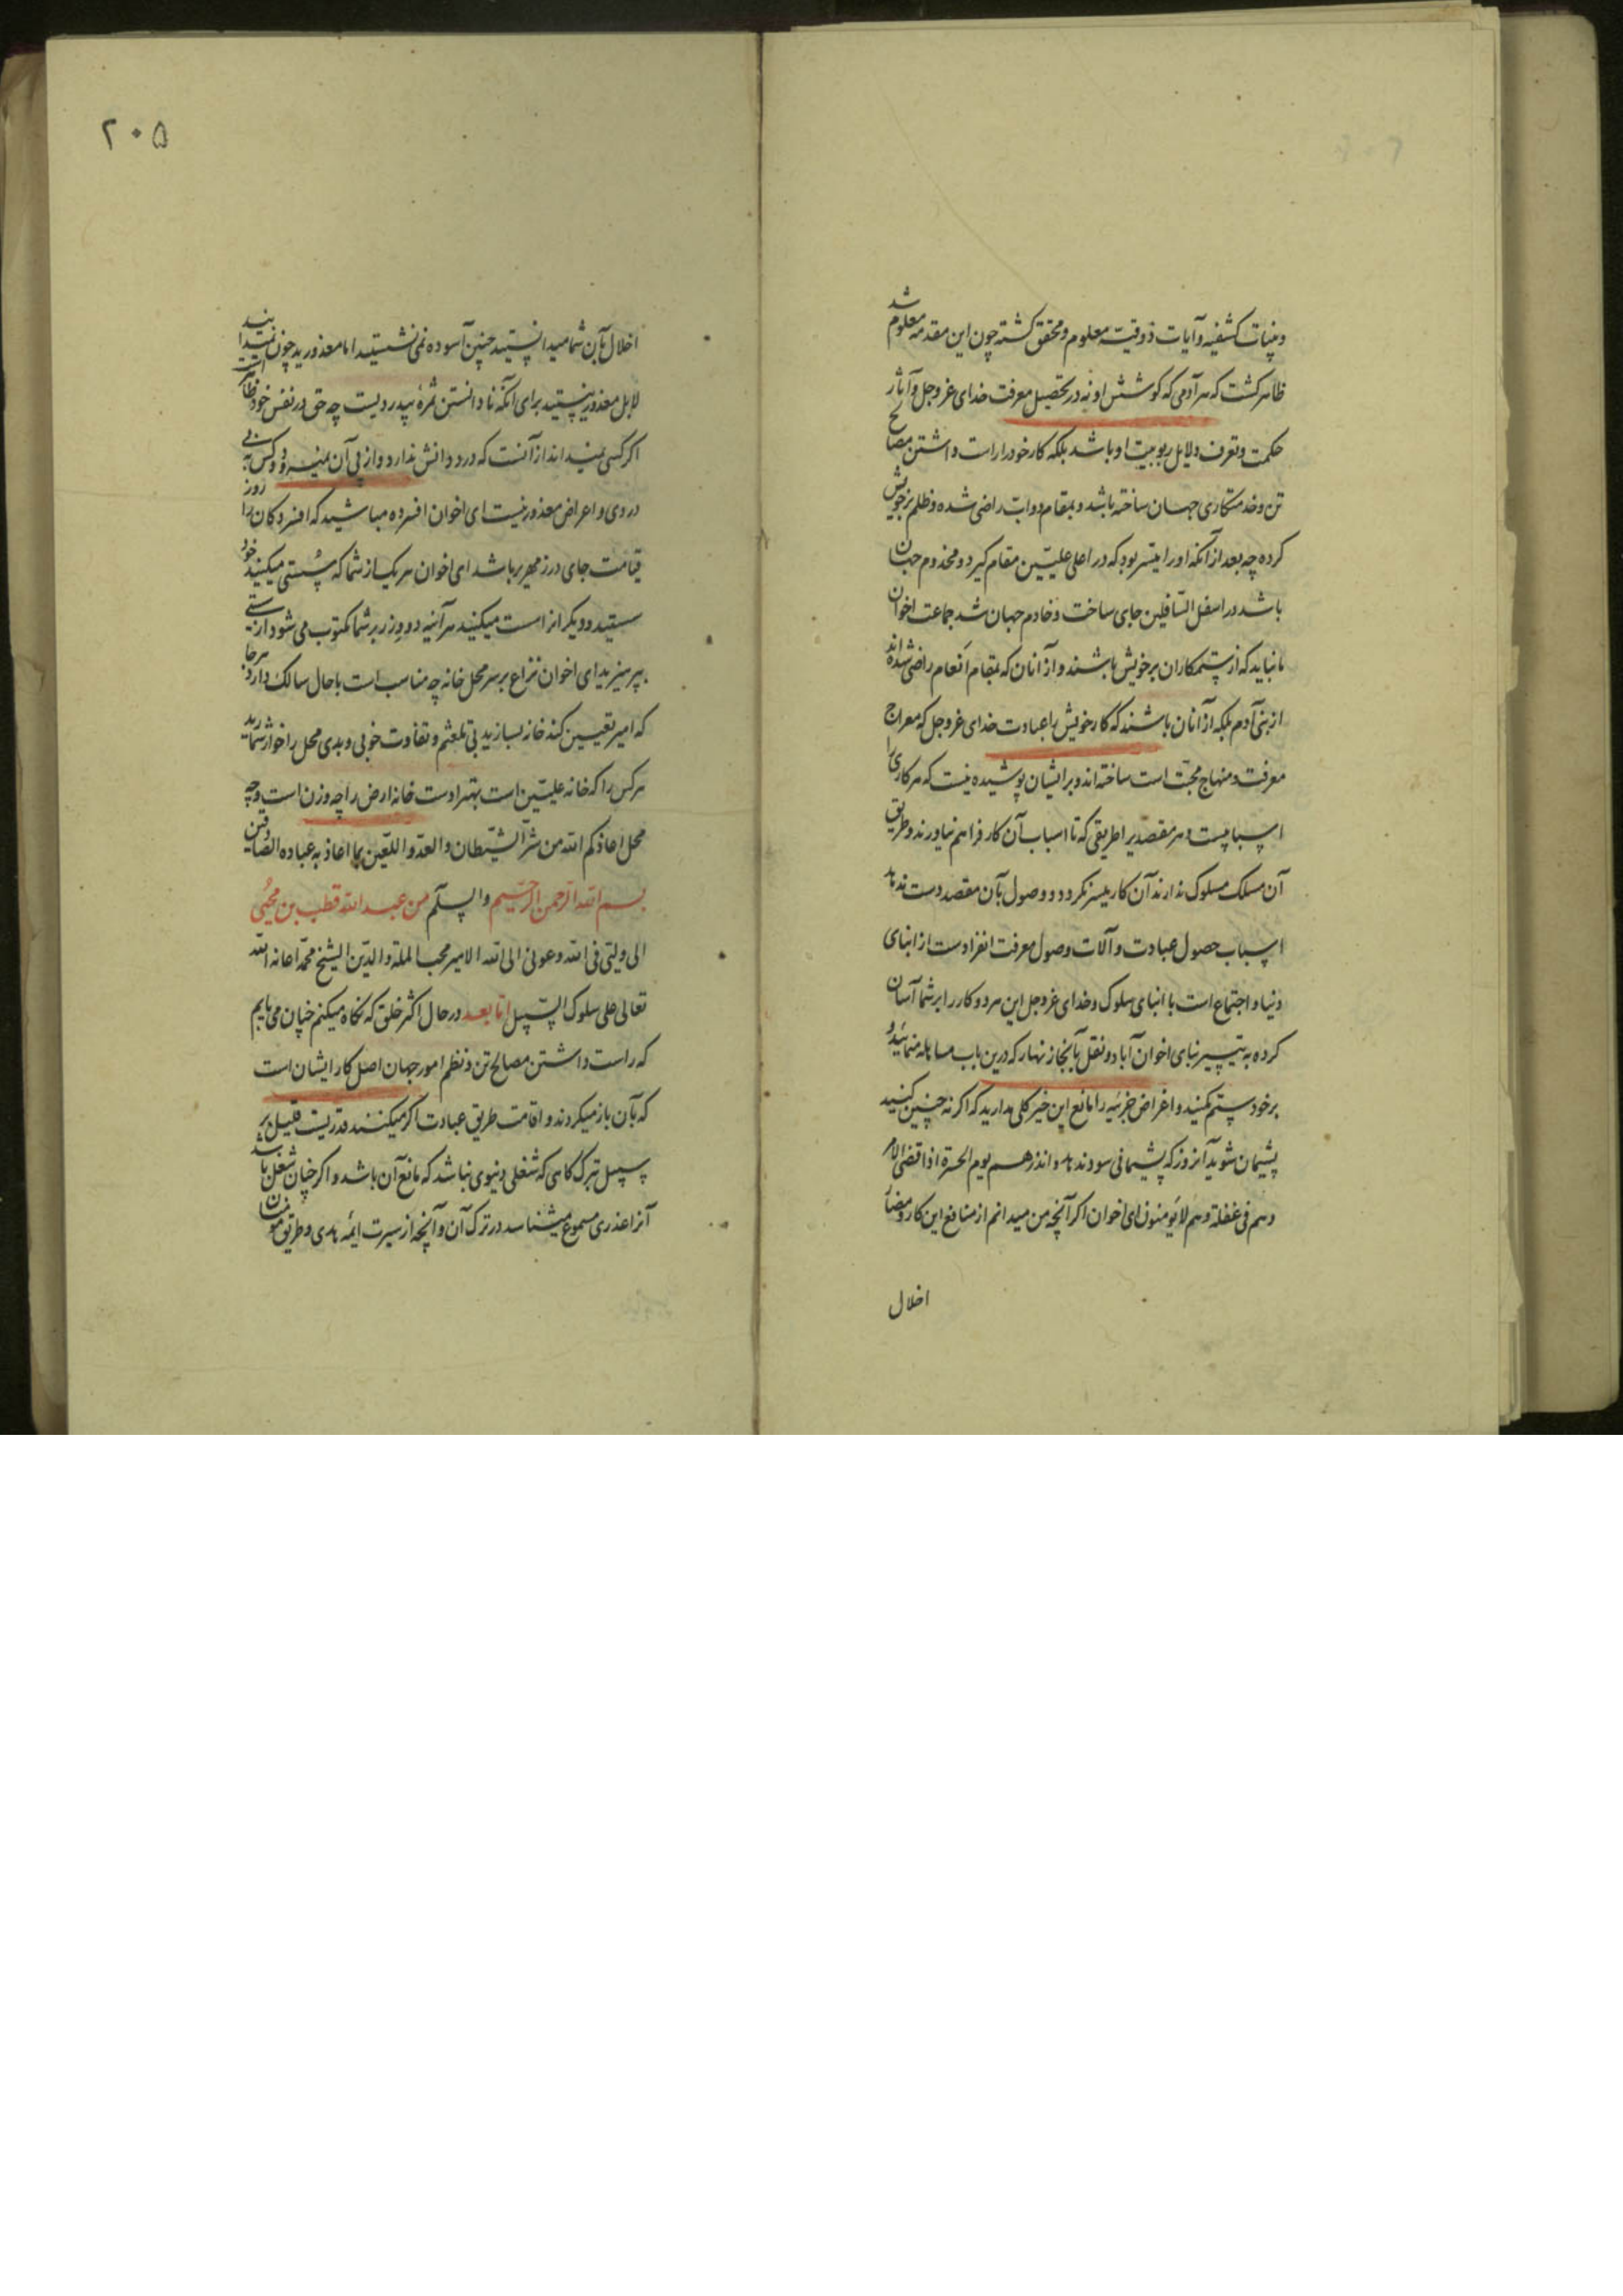 وبینات کشفیه وآیات ذوقیت معلوم ومحقق کشته چون این مقدمه معلوم شد
ظاهر کشت که هر آدمی که کوشش او نه در تحصیل معرفت خدای عزوجل وآثار
حکمت وتعرف دلایل ربوبیت او باشد بلکه کار خود را راست داشتن مصالح
تن وخدمتکاری جهان ساخته باشد وبمقام دواب راضی شده وظلم بر خویش
کرده چه بعد از آنکه او را میسر بود که در اعلی علیین مقام کیرد ومخدوم جهان
باشد در اسفل السافلین جای ساخت وخادم جهان شد جماعت اخوان
ما نباید که از ستمکاران بر خویش باشند واز آنان که بمقام انعام راضی شده اند
از بنی آدم بلکه از آنان باشند که کار خویش را عبادت خدای عزوجل که معراج
معرفت ومنهاج محبت است ساخته اند وبر ایشان پوشیده نیست که هر کاری را
اسبابیست وهر مقصدیرا طریقی که تا اسباب آن کار فراهم نیاورند وطریق
آن مسلک مسلوک ندارند آن کار میسر نکردد ووصول بآن مقصد دست ندهد
اسباب حصول عبادت وآلات وصول معرفت انفرادست از ابنای
دنیا واجتماع است با ابنای سلوک وخدای عزوجل این هر دو کار را بر شما آسان
کرده به تیسیر بنای اخوان آباد ونقل بآنجا زنهار که درین باب مساهله منمائید و
بر خود ستم مکنید واغراض جزئیه را مانع این خیر کلی مدارید که اکر نه چنین کنید
پشیمان شوید آنروز که پشیمانی سود ندهد وانذرهم یوم الحسرة اذا قضی الامر
وهم فی غفلة وهم لا یؤمنون ای اخوان اکر آنچه من میدانم از منافع این کار ومضار
اخلال
۲۰۵
اخلال بآن شما میدانستید چنین آسوده نمی نشستید اما معذورید چون نمیدانید
لا بل معذور نیستید برای آنکه نادانستن ثمره بیدردیست چه حق در نفس خود ظاهر است
اکر کسی نمیداند از آنست که درد دانش ندارد واز پی آن نمیرود وکس به بی
دردی واعراض معذور نیست ای اخوان افسرده مباشید که افسردکان را روز
قیامت جای در زمهریر باشد ای اخوان هر یک از شما که سستی میکنید خود
سستید ودیکر انرا سست میکنید هر آینه دو وزر بر شما مکتوب می شود از سستی
بپرهیزید ای اخوان نزاع بر سر محل خانه چه مناسب است با حال سالک دارد هر جا
که امیر تعیین کند خانه بسازید بی تلعثم وتفاوت خوبی وبدی محل را خوار شمارید
هر کس را که خانه علیین است بهتر اوست خانه ارض را چه وزن است وچه
محل اعاذکم الله من شر الشیطان والعدو اللعین بما اعاذ به عباده الصادقین
بسم الله الرحمن الرحیم والسلم من عبد الله قطب بن محیی
الی ولیتی فی الله وعونی الی الله الامیر محب الملة والدین الشیخ محمد اعانه الله
تعالی علی سلوک السبیل اما بعد در حال اکثر خلق که نکاه میکنم چنان می یابم
که راست داشتن مصالح تن ونظم امور جهان اصل کار ایشان است
که بآن باز میکردند واقامت طریق عبادت اکر میکنند قدریست قلیل بر
سبیل تبرک کاهی که شغلی دنیوی نباشد که مانع آن باشد واکر چنان شغل باشد
آنرا عذری مسموع میشناسد در ترک آن وآنچه از سیرت ائمه هدی وطریق مومنان